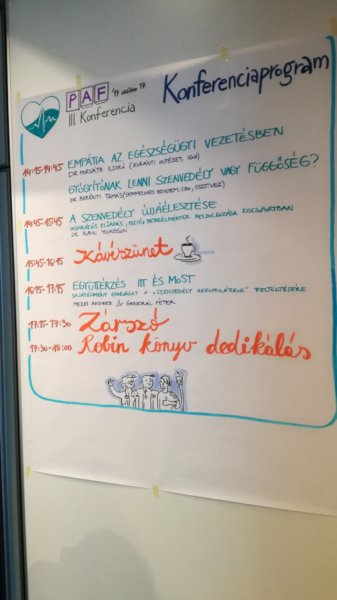 PAF '17 október 17.
III. Konferencia
Konferenciaprogram
14:15-14:45 EMPÁTIA AZ EGÉSZSÉGÜGYI VEZETÉSBEN
DR HORVÁTH ILDIKÓ
GYÓGYÍTÓNAK LENNI SZENVEDÉLY VAGY FÜGGŐSÉG?
DR BERÉNYI TAMÁS (SEMMELWEIS EGYETEM, SBO,
14:45-15:45 A SZENVEDÉLY ÚJRAÉLESZTÉSE
INSPIRÁCIÓS ELŐADÁS, FELDOLGOZÁSA KISCSOPORTBAN
DR ROBIN YOUNGSON
15:45-16:15 Kávészünet
16:15-17:15 EGYÜTTÉRZÉS ITT ÉS MOST
GYAKORLAT A "SZENVEDÉLY AKKUMULÁTORUK" FELTÖLTÉSÉRE
MEZEI ANDREA & GENERÁL PÉTER
17:15-17:30 Zárszó
17:30-18:00 Robin könyv dedikálás